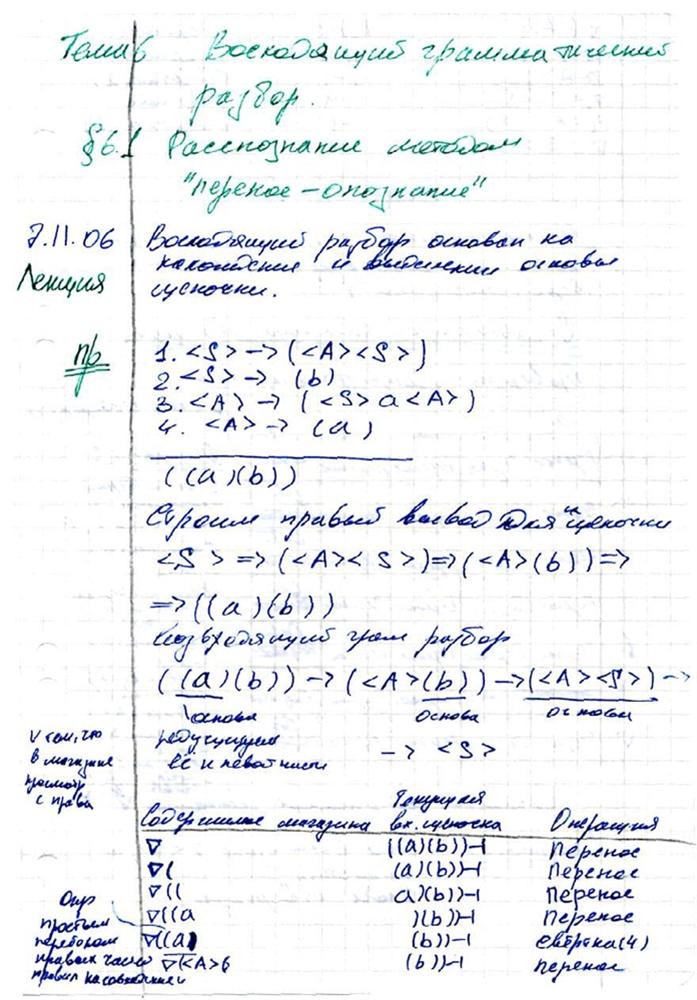 Тема 6 Восходящий грамматический
разбор.
§6.1 Расспознание методом
"перенос – опознание"
7.11.06 Восходящий разбор основан на
Лекция нахождении и выделении основы
цепочки.
пр 1. <S> –> (<A><S>)
2. <S> –> (b)
3. <A> –> (<S>a<A>)
4. <A> –> (a)
((a)(b))
Строим правый вывод для цепочки
<S> => (<A><S>) => (<A>(b)) =>
=> ((a)(b))
грам разбор
((a)(b)) –> (<A>(b)) –> (<A><S>) –>
основа основа основа
редуцируем
её –> <S>
в магазине
просмотр
с права
Содержимое магазина Текущая вх. цепочка Операция
∇ ((a)(b))⊣ Перенос
∇( (a)(b))⊣ Перенос
∇(( a)(b))⊣ Перенос
∇((a )(b))⊣ Перенос
∇((a) (b))⊣ свёртка(4)
∇(<A> (b))⊣ перенос
Опр
простым
перебором
правых частей
правил